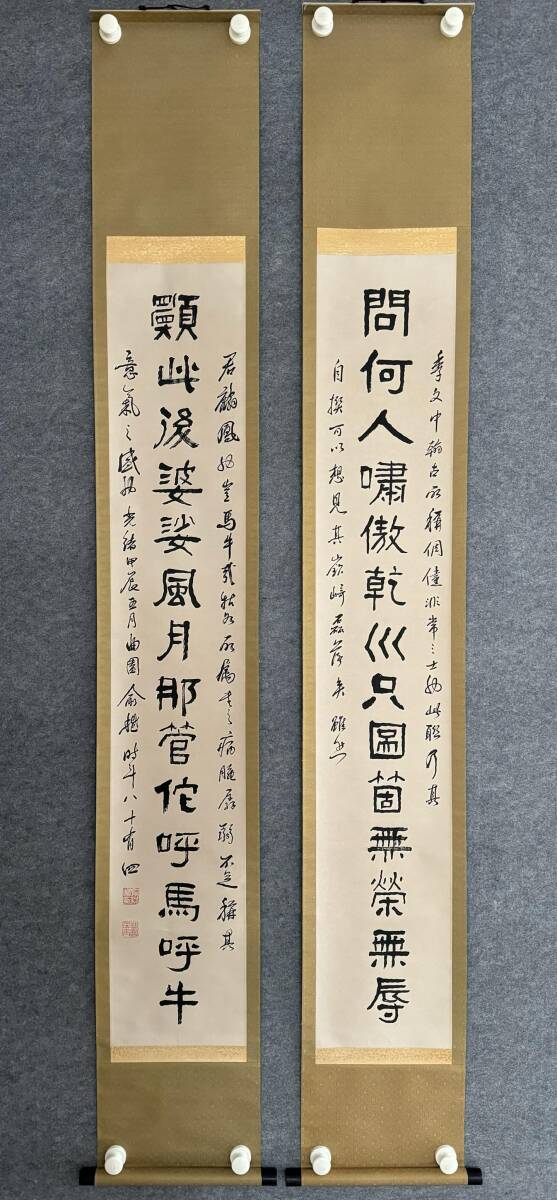 季文中翰古所稱倜儻非常之士也此聯乃其
問何人嘯傲乾巛只圖箇無榮無辱
自撰可以想見其嶔崎磊落矣雖然
君麟鳳也豈馬牛哉所屬書之病腕孱弱不足稱其
願此後婆娑風月那管佗呼馬呼牛
意氣之盛也光緒甲辰五月曲園俞樾時年八十有四